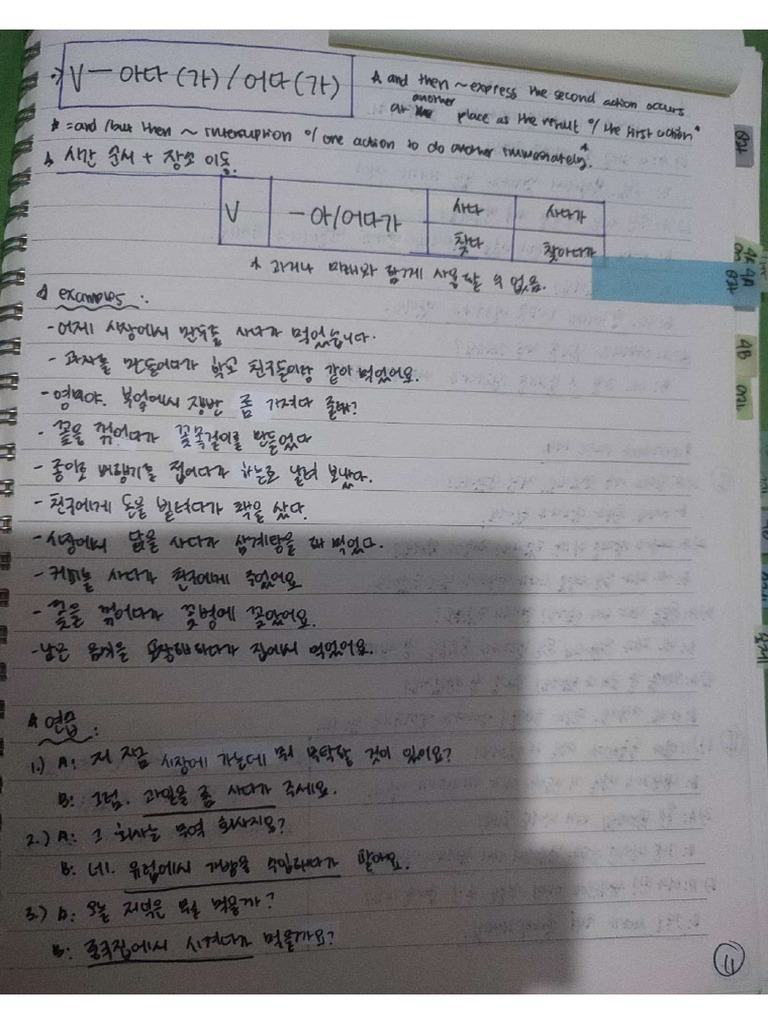 V — 아다(가) / 어다(가)
* and then ~ express the second action occurs
at another place as the result of the first action*
* = and / but then ~ interruption of one action to do another immediately.
* 시간 순서 + 장소 이동
V — 아/어다가 사다 사다가
찾다 찾아다가
* 과거나 미래와 함께 사용할 수 없음.
* examples :
- 어제 시장에서 만두를 사다가 먹었습니다.
- 과자를 만들어다가 학교 친구들이랑 같이 먹었어요.
- 영미야. 부엌에서 쟁반 좀 가져다 줄래?
- 꽃을 꺾어다가 꽃목걸이를 만들었다
- 종이로 비행기를 접어다가 하늘로 날려 보냈다.
- 친구에게 돈을 빌려다가 책을 샀다.
- 시장에서 닭을 사다가 삼계탕을 해 먹었다.
- 커피를 사다가 친구에게 주었어요
- 꽃을 꺾어다가 꽃병에 꽂았어요.
- 남은 음식을 포장해다가 집에서 먹었어요.
* 연습 :
1.) A: 저 지금 시장에 가는데 뭐 부탁할 것이 있어요?
B: 그럼. 과일을 좀 사다가 주세요.
2.) A: 그 회사는 무역 회사지요?
B: 네. 유럽에서 가방을 수입해다가 팔아요.
3.) A: 오늘 저녁은 뭘 먹을까?
B: 중국집에서 시켜다가 먹을까요?
11